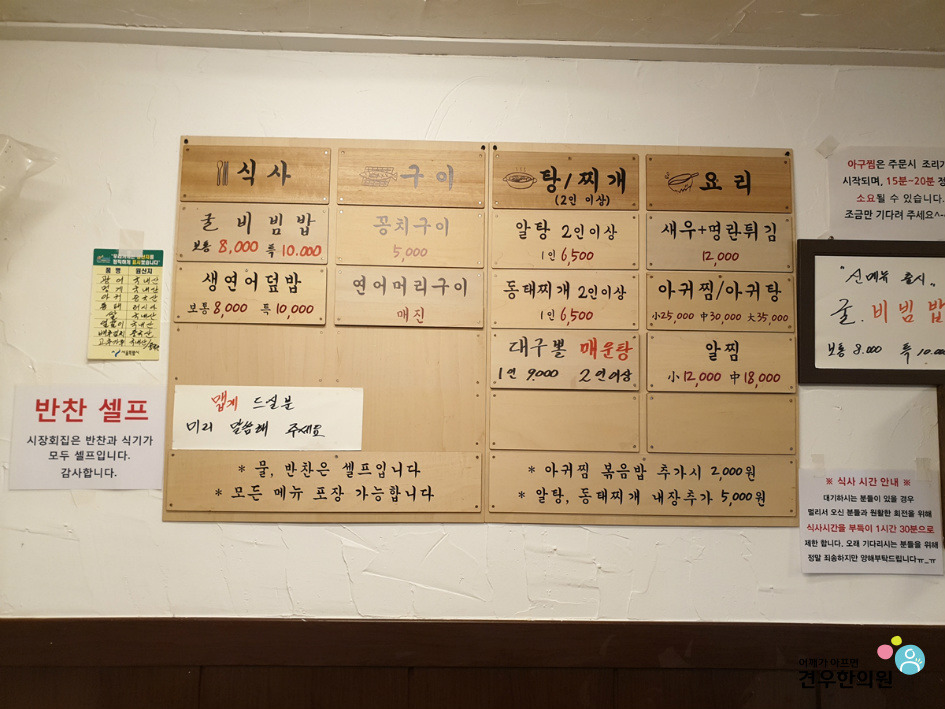 식사
굴 비빔밥
보통 8,000 특 10.000
생연어덮밥
보통 8,000 특 10,000
구이
꽁치구이
5,000
연어머리구이
매진
맵게 드실분
미리 말씀해 주세요
* 물, 반찬은 셀프입니다
* 모든 메뉴 포장 가능합니다
탕/찌개
(2인 이상)
알탕 2인이상
1인 6,500
동태찌개 2인이상
1인 6,500
대구뽈 매운탕
1인 9.000 2인이상
요리
새우+명란튀김
12,000
아귀찜/아귀탕
小25,000 中30,000 大35,000
알찜
小 12,000 中 18,000
* 아귀찜 볶음밥 추가시 2,000원
* 알탕, 동태찌개 내장추가 5,000원
품명 원산지
광어 국내산
국내산
아귀 중국산
동태 러시아
쌀 국내산
국내산
배추김치 중국산
서울특별시
반찬 셀프
시장회집은 반찬과 식기가
모두 셀프입니다.
감사합니다.
아구찜은 주문시 조리가
시작되며, 15분~20분 정
소요될 수 있습니다.
조금만 기다려 주세요^^
"신메뉴 출시"
굴. 비빔밥
보통 8.000 특 10.00
※ 식사 시간 안내 ※
대기하시는 분들이 있을 경우
멀리서 오신 분들과 원활한 회전을 위해
식사시간을 부득이 1시간 30분으로
제한 합니다. 오래 기다리시는 분들을 위해
정말 죄송하지만 양해부탁드립니다ㅠ_ㅠ
어깨가 아프면
견우한의원